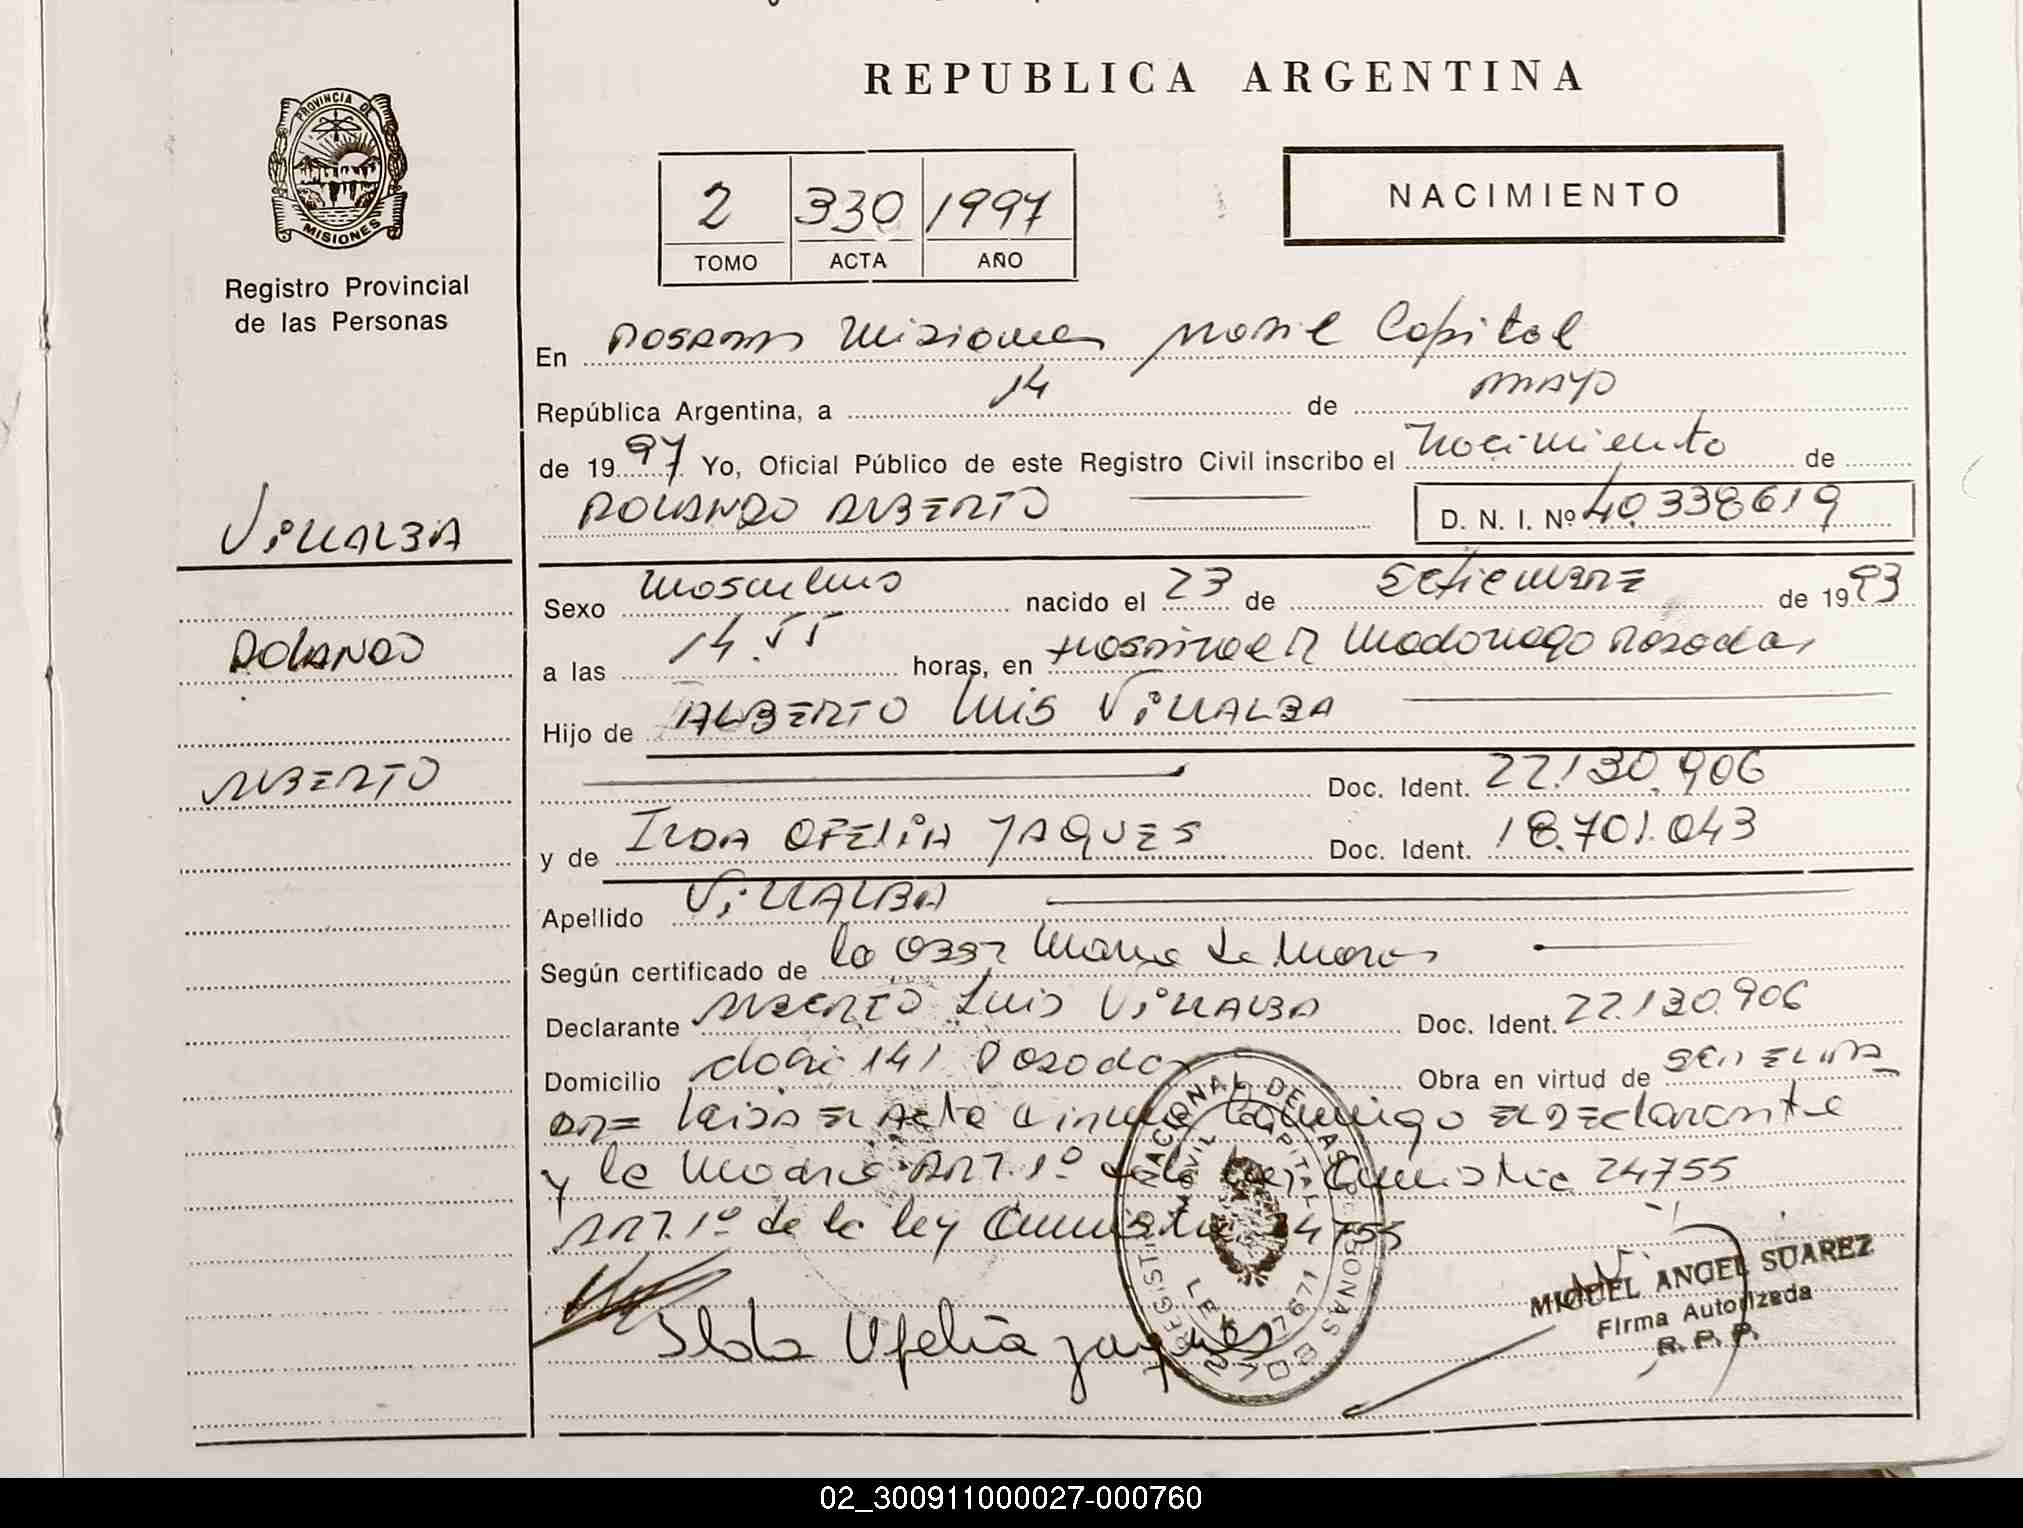 REPUBLICA ARGENTINA
PROVINCIA DE
MISIONES
Registro Provincial
de las Personas
2 330 1997
TOMO ACTA AÑO
NACIMIENTO
En Posadas Misiones Capital
República Argentina, a 14 de mayo
de 1997 Yo, Oficial Público de este Registro Civil inscribo el Nacimiento de
ROLANDO ALBERTO D. N. I. Nº 40.338619
VILLALBA
Sexo Masculino nacido el 23 de Setiembre de 1993
ROLANDO
a las 14.55 horas, en Hospital R Madariaga Posadas
Hijo de ALBERTO Luis VILLALBA
ALBERTO
Doc. Ident. 22.130.906
y de ILDA OFELIA JAQUES Doc. Ident. 18.701.043
Apellido VILLALBA
Según certificado de la Obst Maria
Declarante ALBERTO Luis VILLALBA Doc. Ident. 22.130.906
Domicilio 141 Posadas Obra en virtud de ser el PA
DRE Leida el Acta firma conmigo el Declarante
y la Madre ART. 1º de la ley Amnistia 24755
ART. 1º de la ley Amnistia 24755
REGISTRO NACIONAL DE LAS PERSONAS
CIVIL CAPITAL
LEY 17671
MIGUEL ANGEL SUAREZ
Firma Autorizada
R. P. P.
Ilda Ofelia Jaques
02_300911000027-000760